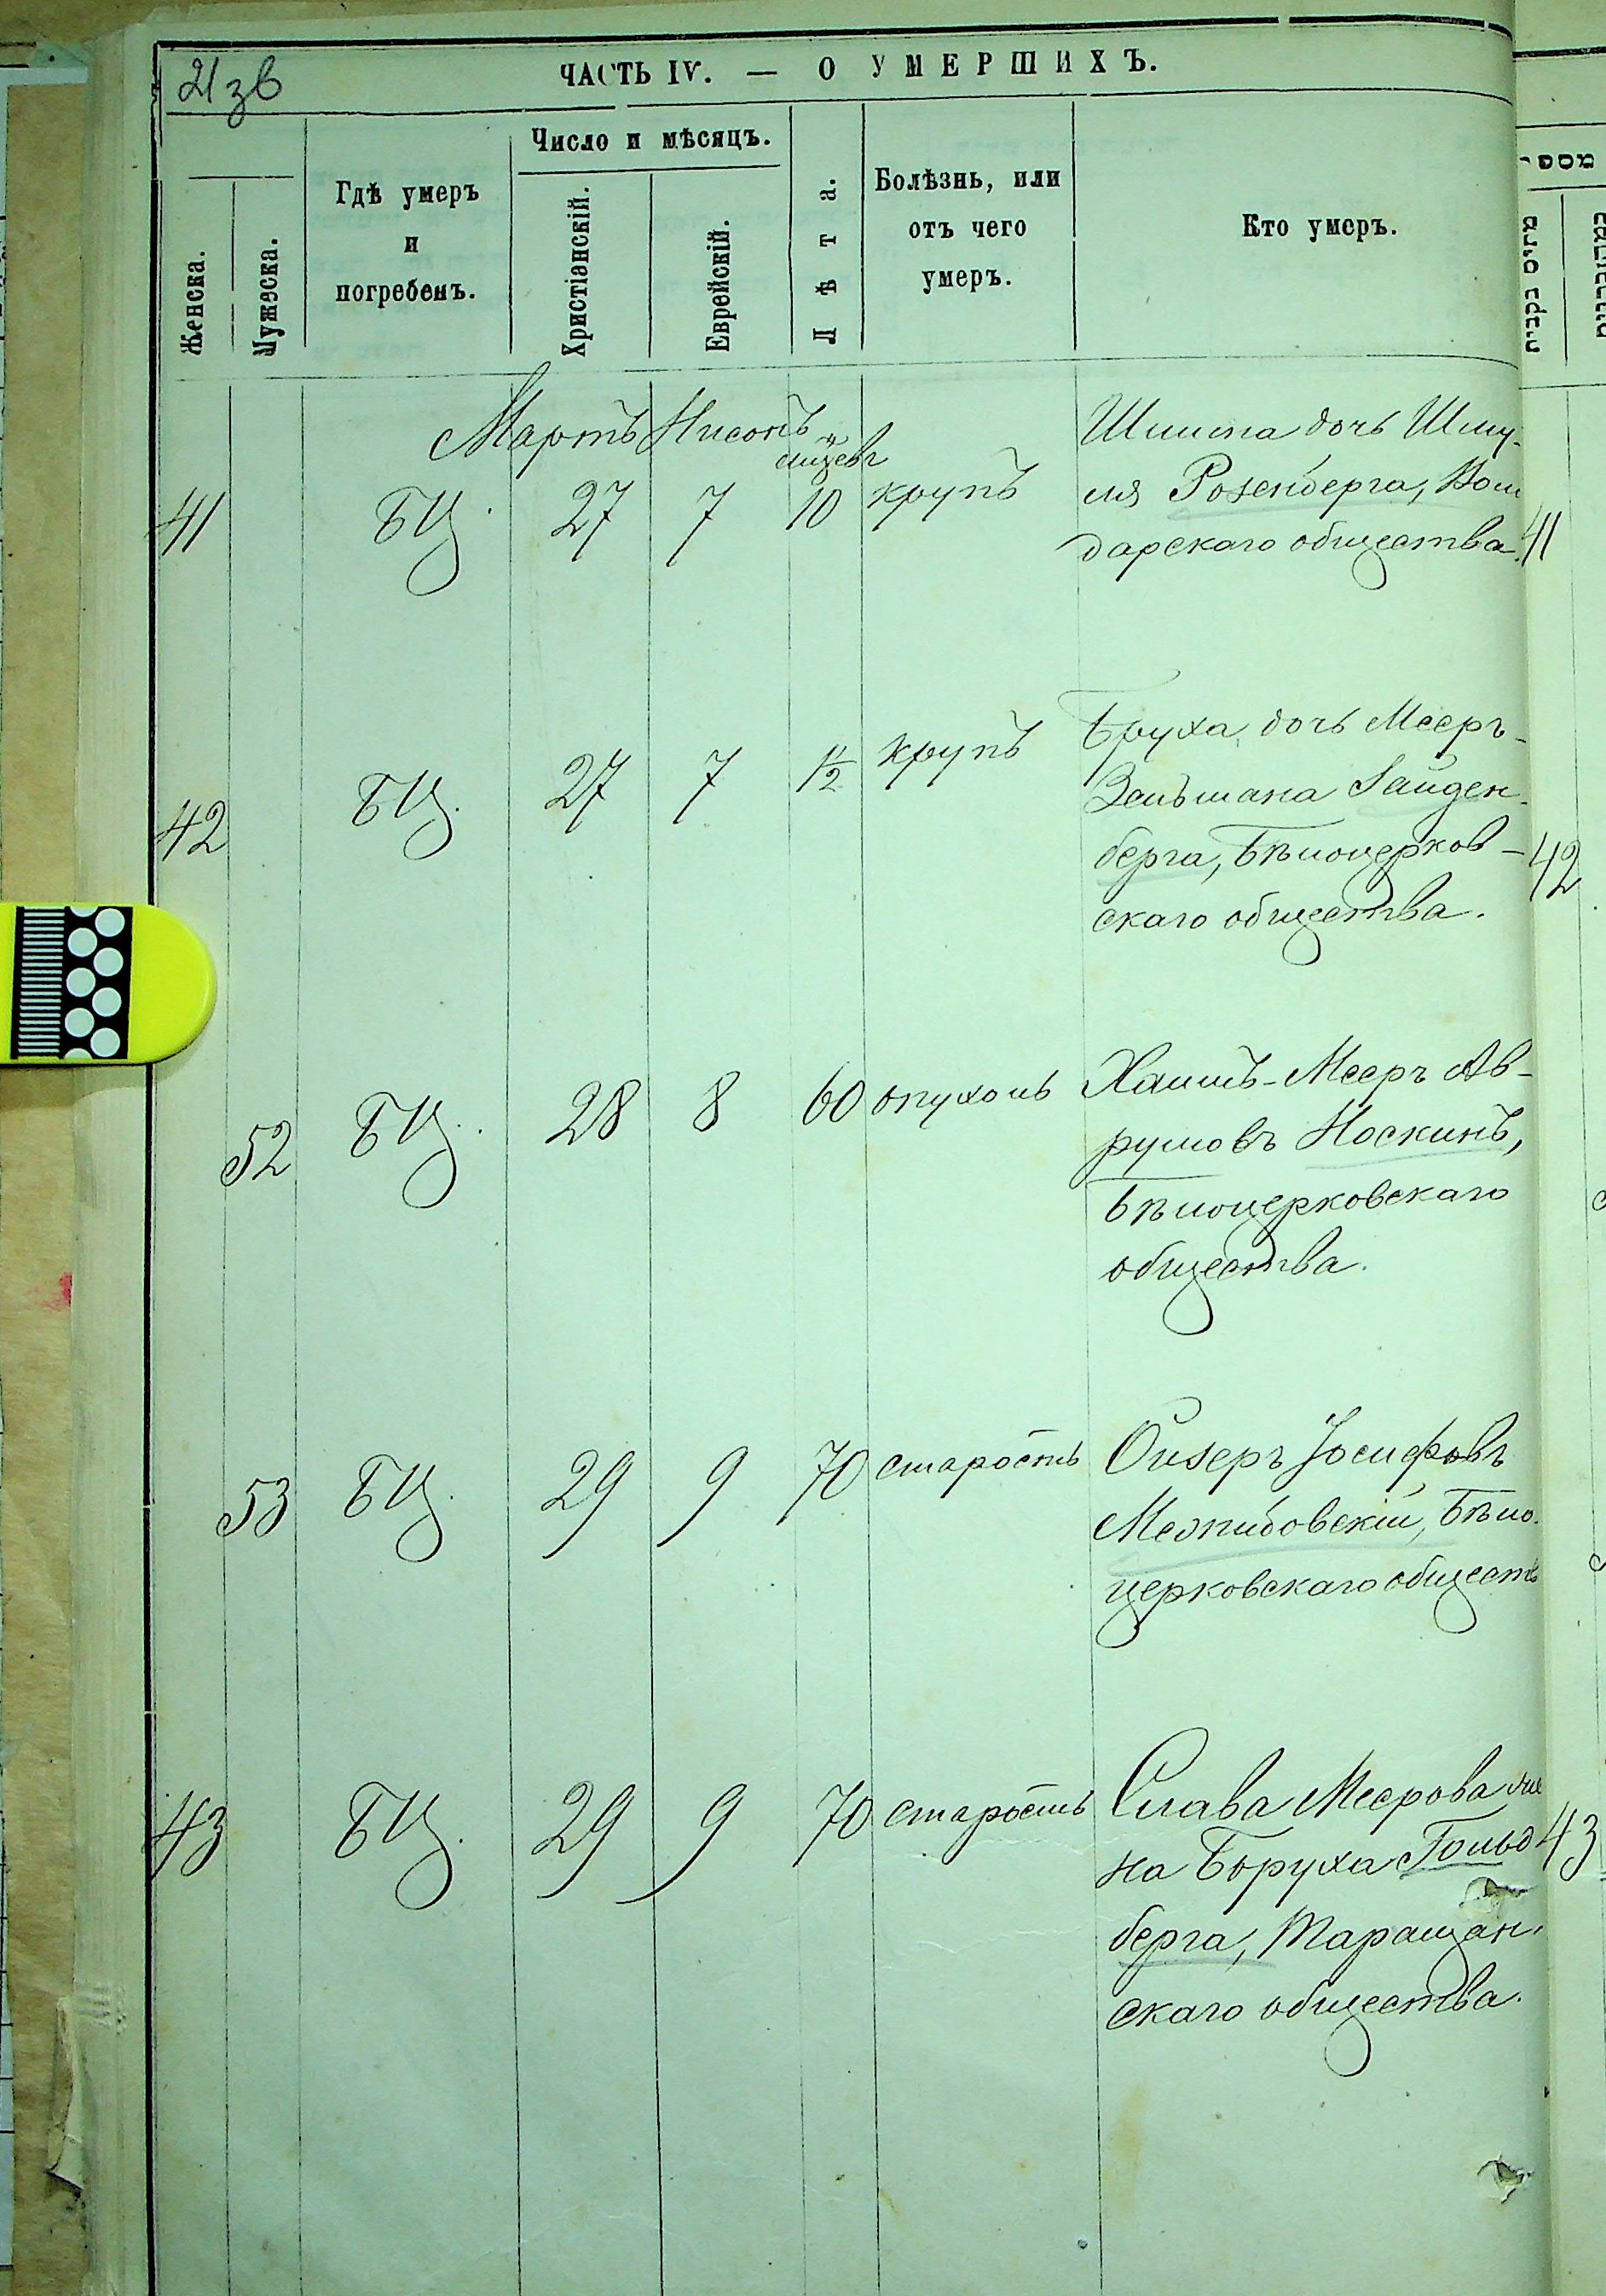 21 зв
ЧАСТЬ IV. — О УМЕРШИХЪ.
Женска.
Мужеска.
Гдѣ умеръ
и
погребенъ.
Число и мѣсяцъ.
Христіанскій.
Еврейскій.
Лѣта.
Болѣзнь, или
отъ чего
умеръ.
Кто умеръ.
Мартъ Нисонъ
41 БЦ. 27 7 10 крупъ
дочь Шму-
ля Розенберга,
дарскаго общества. 41
42 БЦ. 27 7 1½ крупъ
Бруха, дочь Мееръ-
Зельмана Зайден-
берга, Бѣлоцерков- 42
скаго общества.
52 БЦ. 28 8 60 опухоль
Хаимъ-Мееръ Ав-
румовъ Носкинъ,
Бѣлоцерковскаго
общества.
53 БЦ. 29 9 70 старость
Ойзеръ Іосифовъ
Межибовскій, Бѣло-
церковскаго обществ
43 БЦ. 29 9 70 старость
Слава Меерова же
на Боруха Гольд 43
берга, Таращан-
скаго общества.